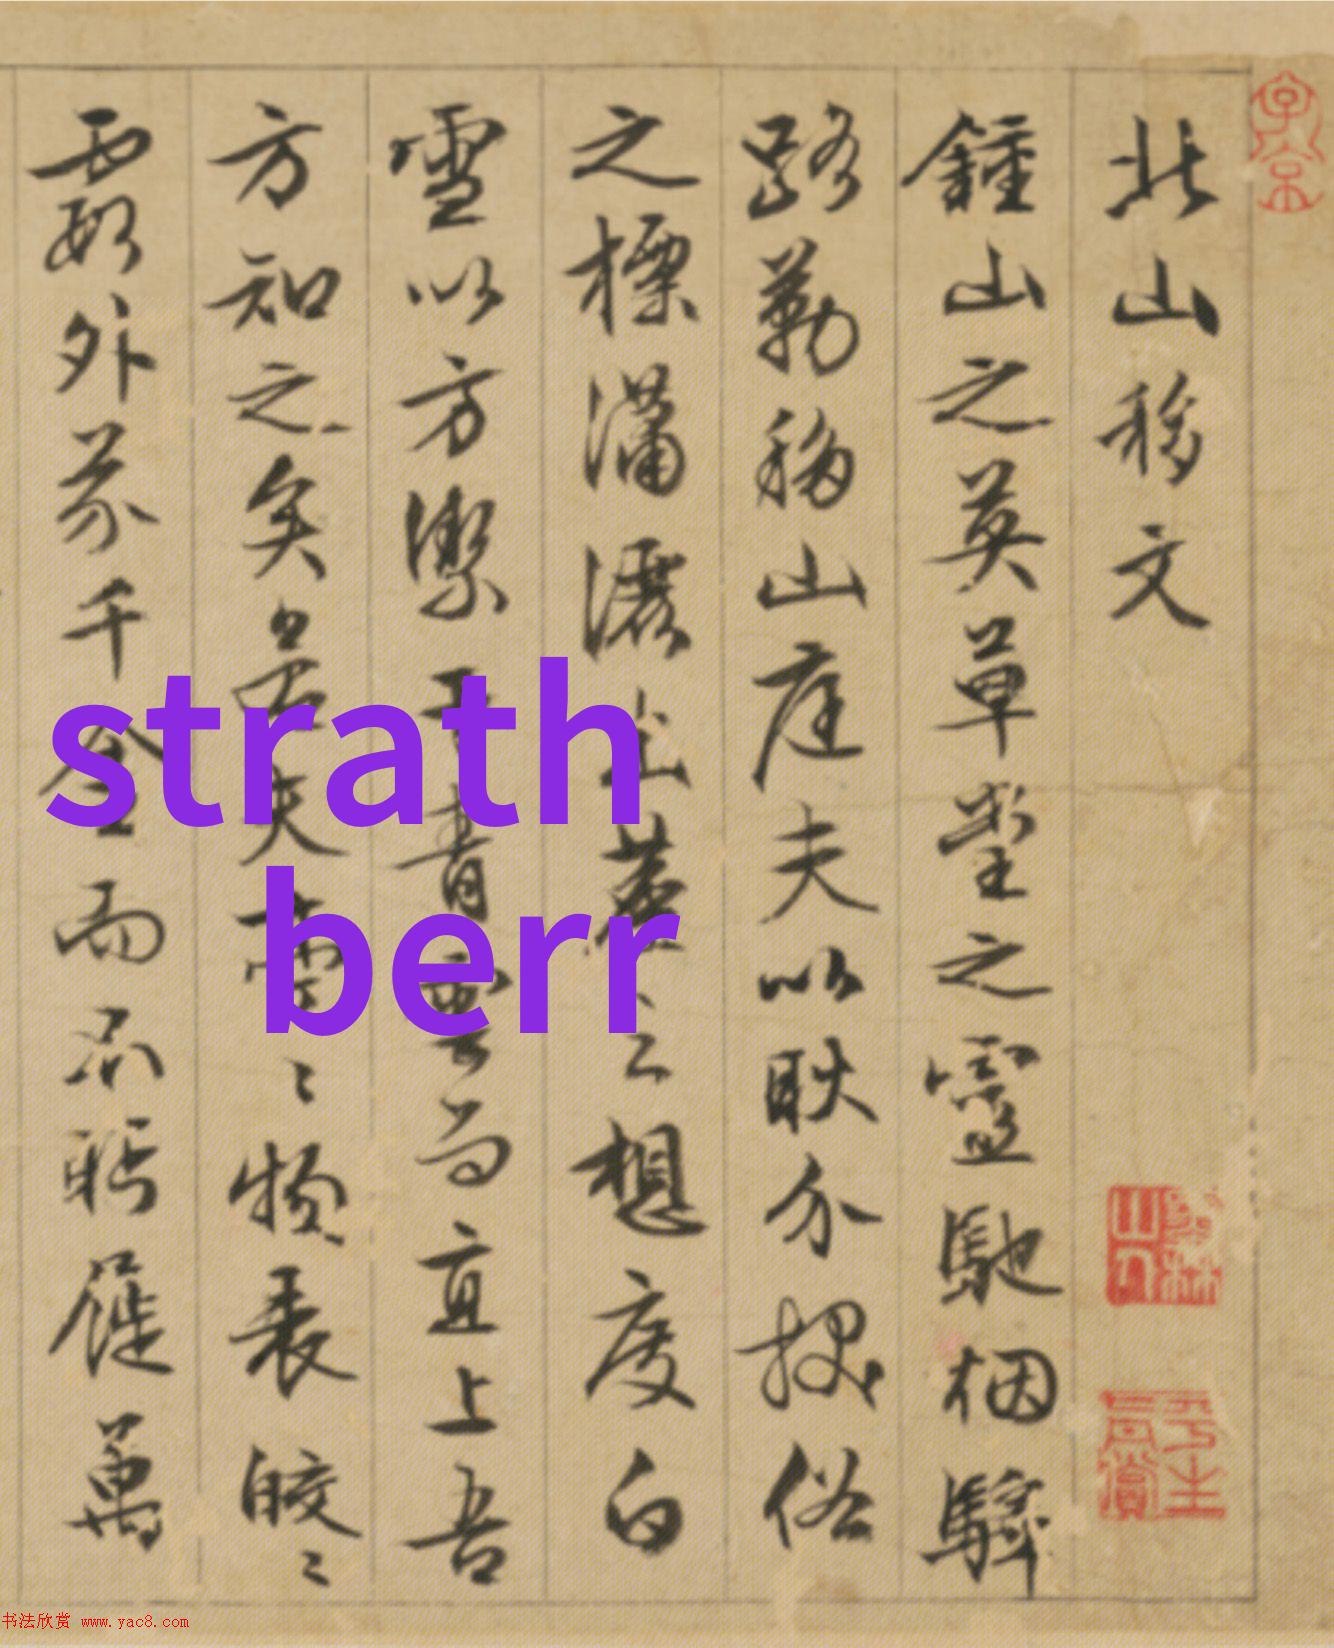 北山移文
鍾山之英草堂之靈馳烟驛
路勒移山庭夫以耿介拔俗
之標瀟灑出塵之想度白
雪以方潔干青雲而直上吾
方知之矣若夫亭〻物表皎〻
霞外芥千金而不眄屣萬
子京
墨林山人
平生真賞
strath
berr
书法欣赏 www.yac8.com